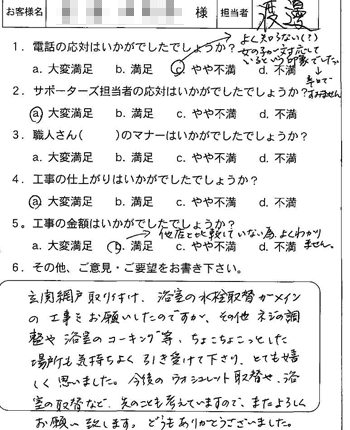 お客様名 様 担当者 渡邊
1．電話の応対はいかがでしたでしょうか？
よく知らない（？）
女の子が対応して
いるという印象でした
a. 大変満足 b. 満足 c. やや不満 d. 不満
2．サポーターズ担当者の応対はいかがでしたでしょうか？
a. 大変満足 b. 満足 c. やや不満 d. 不満
3．職人さん(　　　)のマナーはいかがでしたでしょうか？
a. 大変満足 b. 満足 c. やや不満 d. 不満
4．工事の仕上がりはいかがでしたでしょうか？
a. 大変満足 b. 満足 c. やや不満 d. 不満
5．工事の金額はいかがでしたでしょうか？
他店と比較していない為、よくわかり
ません。
a. 大変満足 b. 満足 c. やや不満 d. 不満
6．その他、ご意見・ご要望をお書き下さい。
玄関網戸取り付け、浴室の水栓取替がメイン
の工事をお願いしたのですが、その他ネジの調
整や浴室のコーキング等、ちょこちょことした
場所も気持ちよく引き受けて下さり、とても嬉
しく思いました。今後のウォシュレット取替や、浴
室の取替など、先のことも考えていますので、またよろしく
お願い致します。どうもありがとうございました。